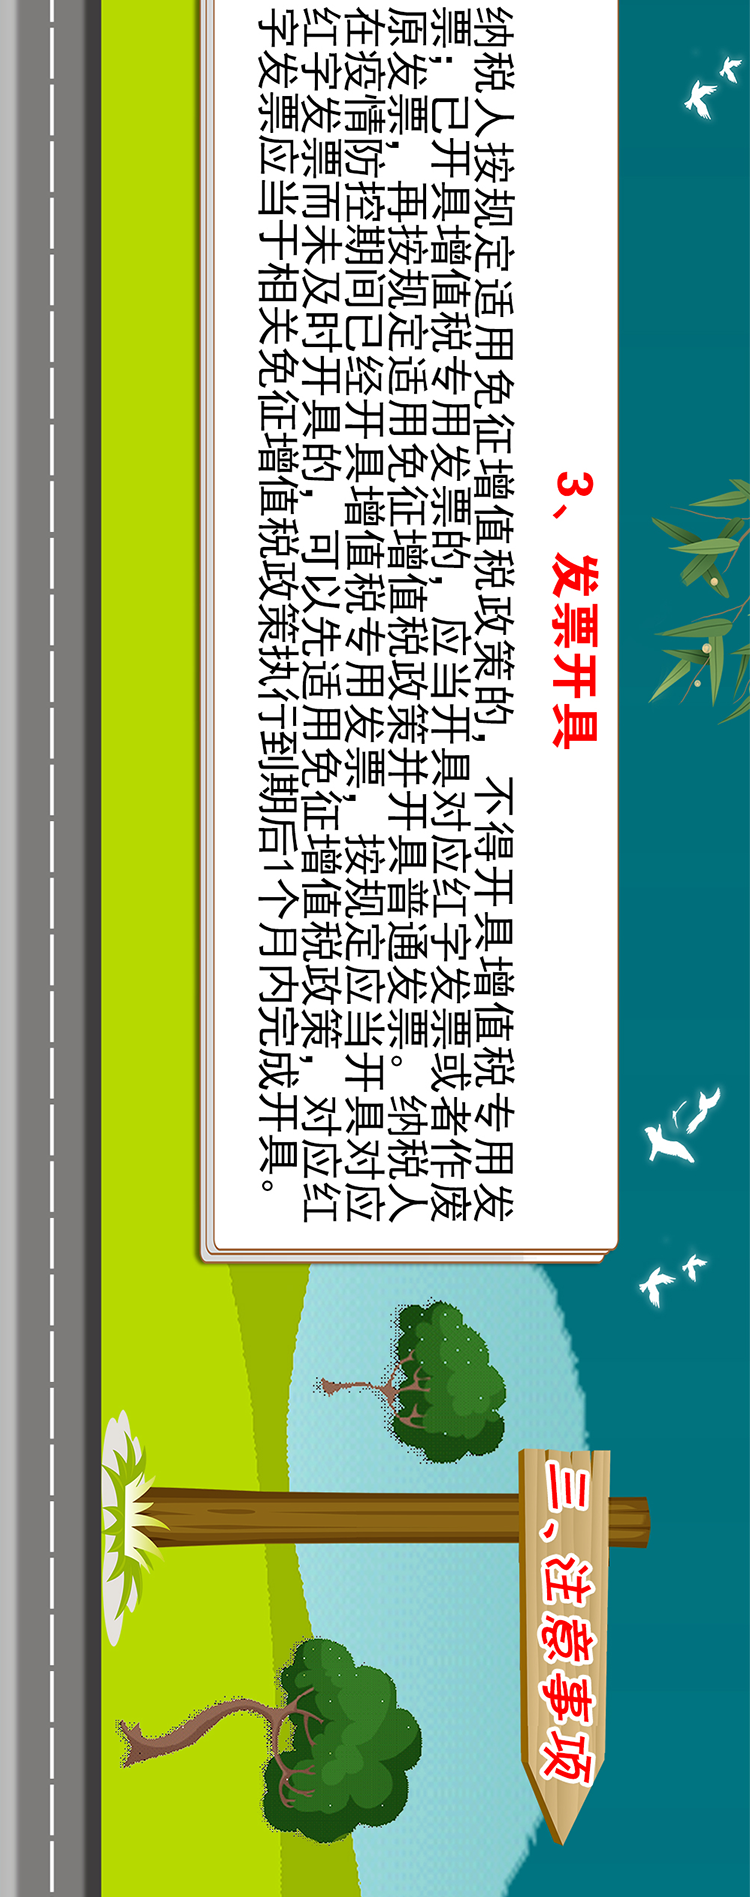 3、发票开具
纳税人按规定适用免征增值税政策的，不得开具增值税专用发
票；已开具增值税专用发票的，应当开具对应红字发票或者作废
原发票，再按规定适用免征增值税政策并开具普通发票。纳税人
在疫情防控期间已经开具增值税专用发票，按规定应当开具对应
红字发票而未及时开具的，可以先适用免征增值税政策，对应红
字发票应当于相关免征增值税政策执行到期后1个月内完成开具。
三、注意事项